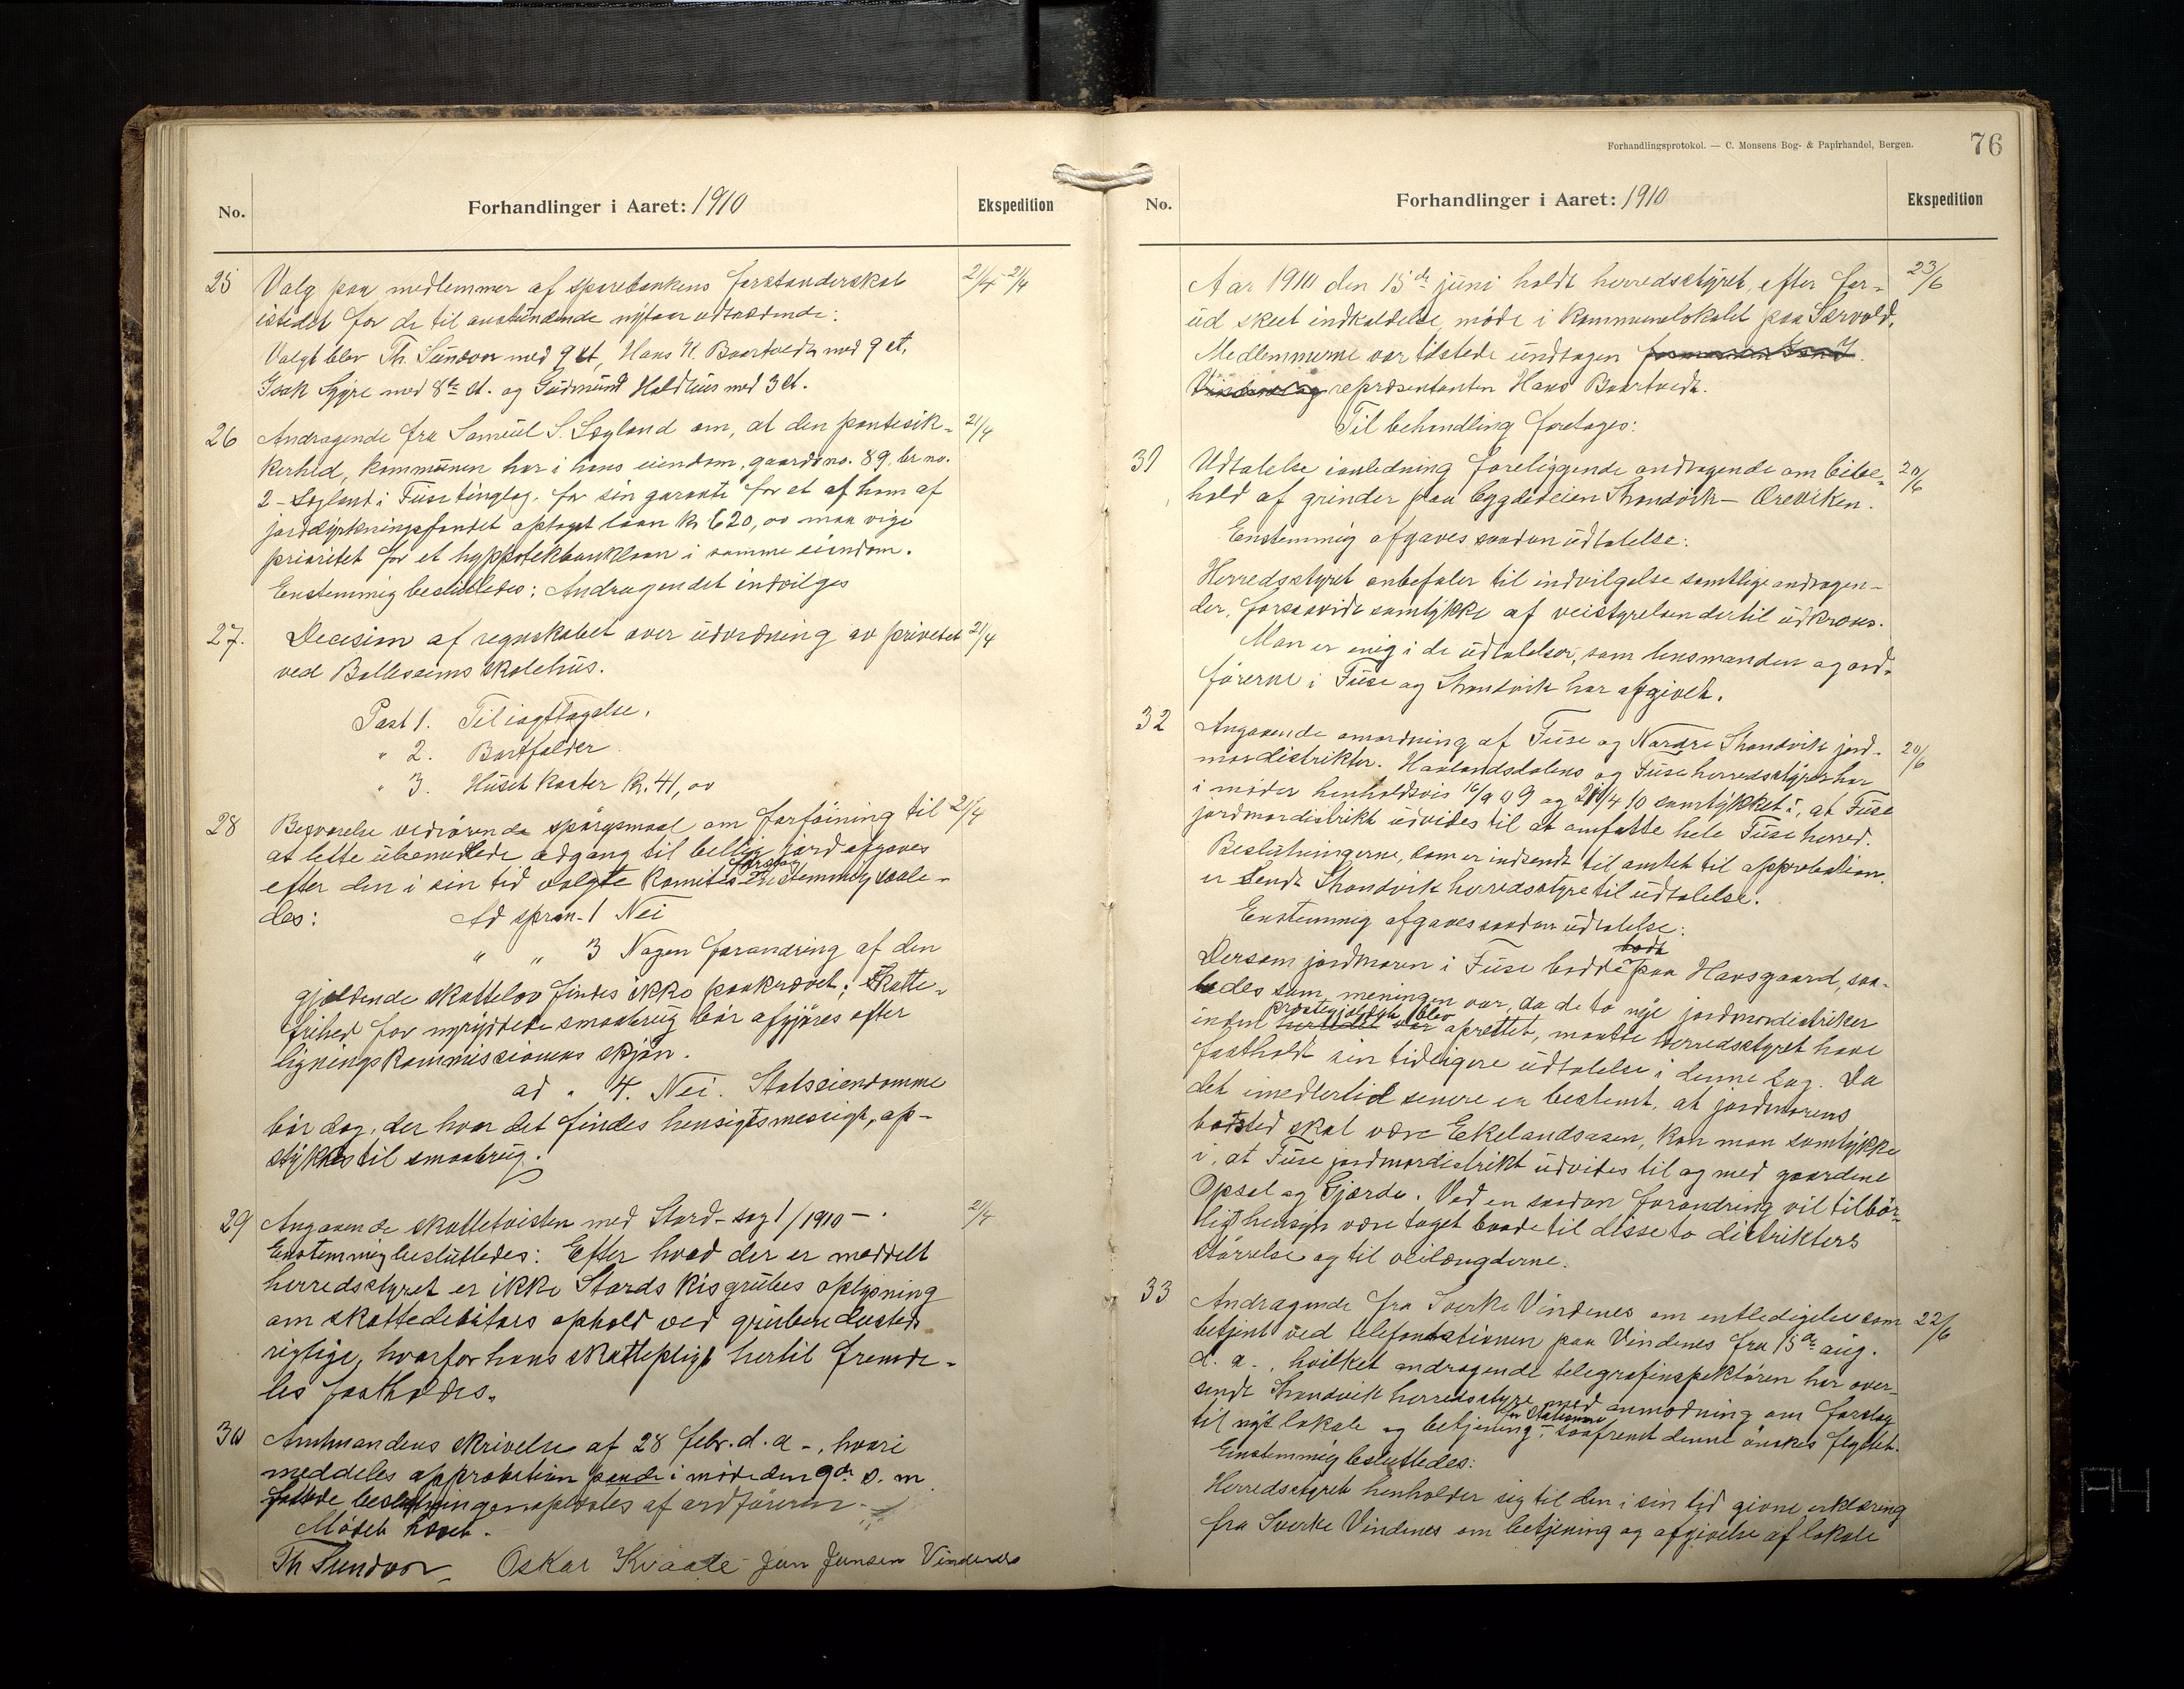 No.
Forhandlinger i Aaret: 1910
Ekspedition
25 Valg paa medlemmer af sparebankens forstanderskab 21/4 21/4
istedet for de til anstundende nytaar udtrædende:
Valgt blev Th. Sundvor med 9 st, Hans H. Boartvedt med 9 st,
Isak Gjøre med 8te st. og Gudmund Holdhus med 3 st.
26 Andragende fra Samuel S. Løgland om, at den pantesik- 21/4
kerhed, kommunen har i hans eiendom, gaardsno. 89, br no.
2 - Løgland i Fuse tinglag, for sin garanti for et af ham af
jorddyrkningsfondet optaget laan kr 620,00 maa vige
prioritet for et hyppotekbanklaan i samme eiendom.
Enstemmig besluttedes: Andragendet indvilges
27. Decision af regnskabet over udvidning av privetet 21/4
ved Bolleseims skolehus.
Post 1. Til iagttagelse.
" 2. Bortfalder
" 3. Huset koster kr. 41,00
28 Besvarelse vedrørende spørgsmaal om forføining til 21/4
at lette ubemidlede adgang til billig jord afgaves
efter den i sin tid valgte komites forslag Enstemmig saale-
des: Ad spm. 1 Nei
" " 3 Nogen forandring af den
gjældende skattelov findes ikke paakrævet; skatte-
frihed for nyryddede smaabrug bør afgjøres efter
ligningskommissionens skjøn.
ad " 4. Nei. Statseiendomme
bør dog, der hvor det findes hensigtsmessigt, op-
stykkes til smaabrug.
29 Angaaende skattetvisten med Stord - sag 1/1910 - . 21/4
Enstemmig besluttedes: Efter hvad der er meddelt
herredsstyret er ikke Stords Kisgrubes oplysning
om skattedebitors ophold ved gruben
rigtige, hvorfor hans skattepligt hertil fremde-
les fastholdes.
30 Amtmandens skrivelse af 28 febr. d. a -, hvori
meddeles approbation paa de i møde den 9de s. m
fattede beslutninger oplæstes af ordføreren.
Mødet hævet.
Th Sundvor Oskar Kvaale Jan Jansen Vindenes
Forhandlingsprotokol. — C. Monsens Bog- & Papirhandel, Bergen.
76
No.
Forhandlinger i Aaret: 1910
Ekspedition
Aar 1910 den 15de juni holdt herredsstyret, efter for- 23/6
ud skeet indkaldelse, møde i kommunelokalet paa Særvold.
Medlemmerne var tilstede undtagen
repræsentanten Hans Boartvedt.
Til behandling foretoges:
31 Udtalelse i anledning foreliggende andragende om bibe- 20/6
hold af grinder paa bygdeveien Strandvik - Oreviken.
Enstemmig afgaves saadan udtalelse:
Herredsstyret anbefaler til indvilgelse samtlige andragen-
der, forsaavidt samtykke af veistyrelsen dertil udkræves.
Man er enig i de udtalelser, som lensmanden og ord-
førerne i Fuse og Strandvik har afgivet.
32 Angaaende omordning af Fuse og Nordre Strandvik jord- 20/6
mordistrikter. Haalandsdalens og Fuse herredsstyrer har
i møder henholdsvis 16/9 09 og 21/4 10 samtykket i, at Fuse
jordmordistrikt udvides til at omfatte hele Fuse herred.
Beslutningerne, som er indsendt til amtet til approbation,
er sendt Strandvik herredsstyre til udtalelse.
Enstemmig afgaves saadan udtalelse:
Dersom jordmoren i Fuse bodde paa Havsgaard, saa-
ledes som meningen var, da de to nye jordmordistrikter
inden præstegjældet blev oprettet, maatte herredsstyret have
fastholdt sin tidligere udtalelse i denne sag. Da
det imedlertid senere er bestemt, at jordmorens
bosted skal være Ekelandsosen, kan man samtykke
i, at Fuse jordmordistrikt udvides til og med gaardene
Opsal og Gjærde. Ved en saadan forandring vil tilbør-
ligt hensyn være taget baade til disse to distrikters
størrelse og til veilængderne.
33 Andragende fra Sverke Vindenes om entledigelse som 22/6
betjent ved telefonstationen paa Vindenes fra 15de aug.
d. a., hvilket andragende telegrafinspektøren har over-
sendt Strandvik herredsstyre med anmodning om forslag
til nyt lokale og betjening for Stationen saafremt denne ønskes flyttet.
Enstemmig besluttedes:
Herredsstyret henholder sig til den i sin tid givne erklæring
fra Sverke Vindenes om betjening og afgivelse af lokale
A4